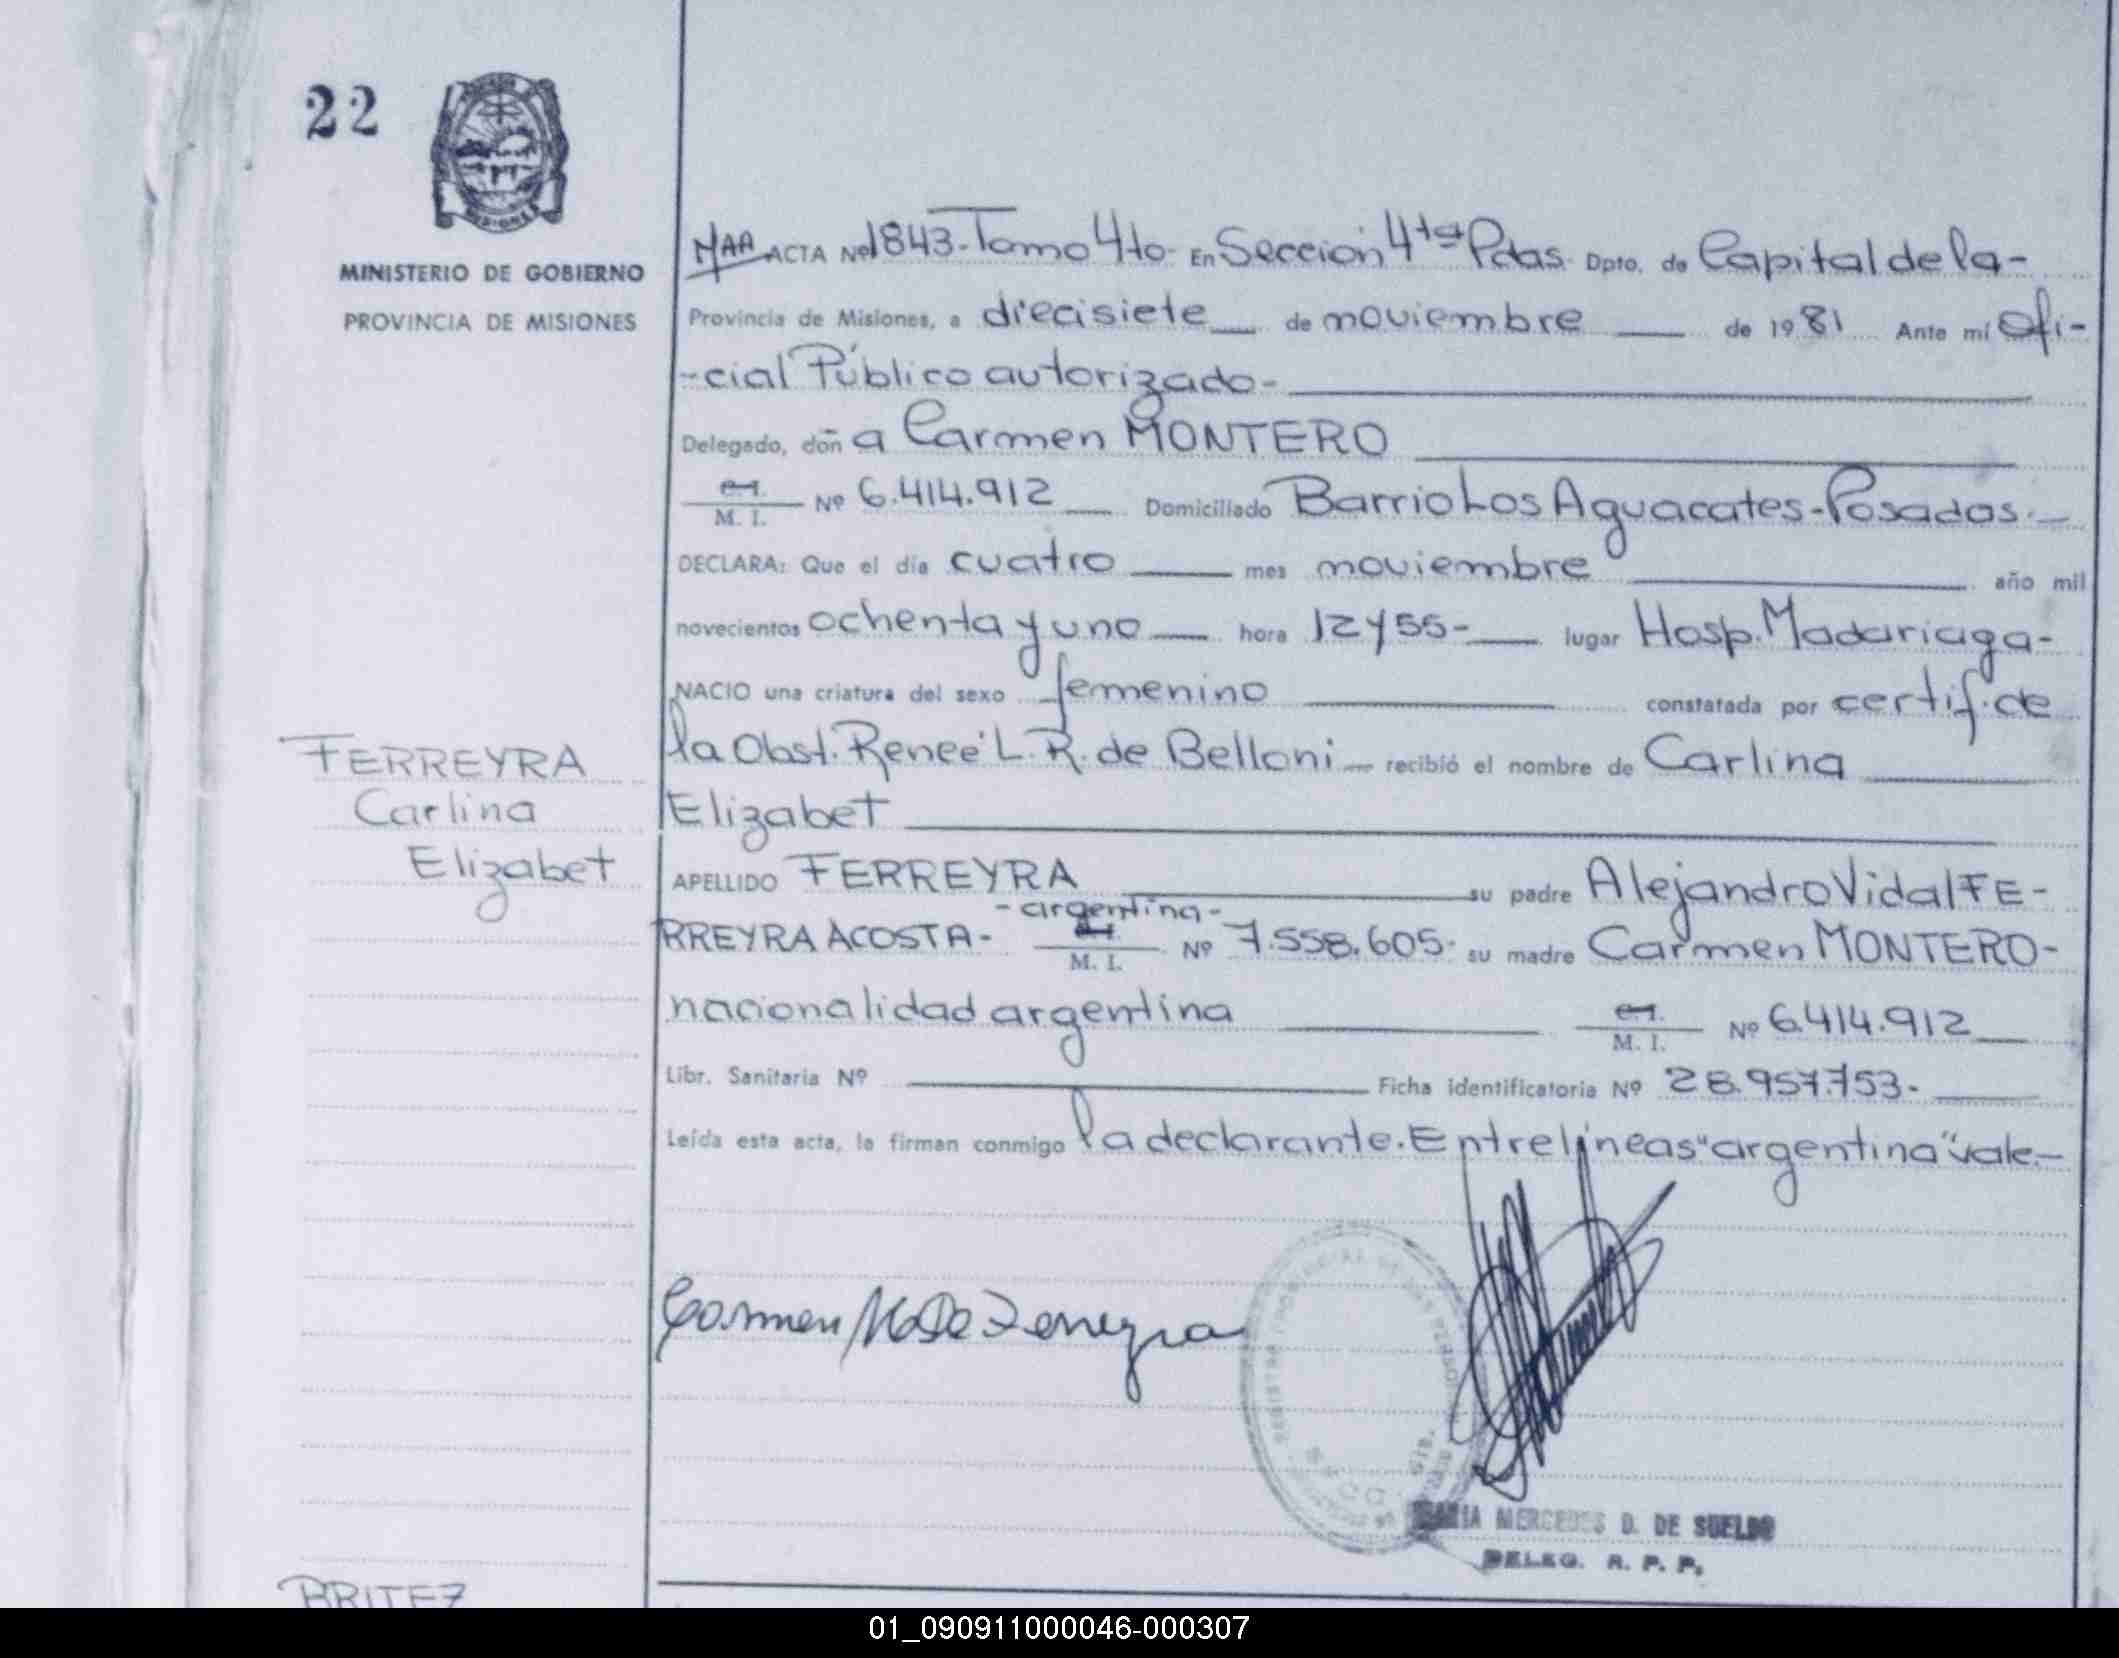 22
MINISTERIO DE GOBIERNO
PROVINCIA DE MISIONES
MAA ACTA Nº 1843- Tomo 4to- En Sección 4ta Pdas. Dpto. de Capital de la-
Provincia de Misiones, a diecisiete de noviembre de 1981 Ante mí Ofi-
-cial Público autorizado-
Delegado, don a Carmen MONTERO
M. I. Nº 6.414.912 Domiciliado Barrio Los Aguacates-Posadas.-
DECLARA: Que el día cuatro mes noviembre año mil
novecientos ochenta y uno hora 12 y 55- lugar Hosp. Madariaga-
NACIO una criatura del sexo femenino constatada por certif. de
la Obst. Reneé L. R. de Belloni recibió el nombre de Carlina
Elizabet
FERREYRA
Carlina
Elizabet
APELLIDO FERREYRA su padre Alejandro Vidal FE-
-argentina-
RREYRA ACOSTA- M. I. Nº 7.558.605- su madre Carmen MONTERO-
nacionalidad argentina M. I. Nº 6.414.912
Libr. Sanitaria Nº Ficha identificatoria Nº 28.957.753-
Leída esta acta, la firman conmigo la declarante. Entrelíneas "argentina" vale.-
Carmen M. De Ferreyra
MARIA MERCEDES D. DE SUELDO
DELEG. R. P. P.
BRITEZ
01_090911000046-000307